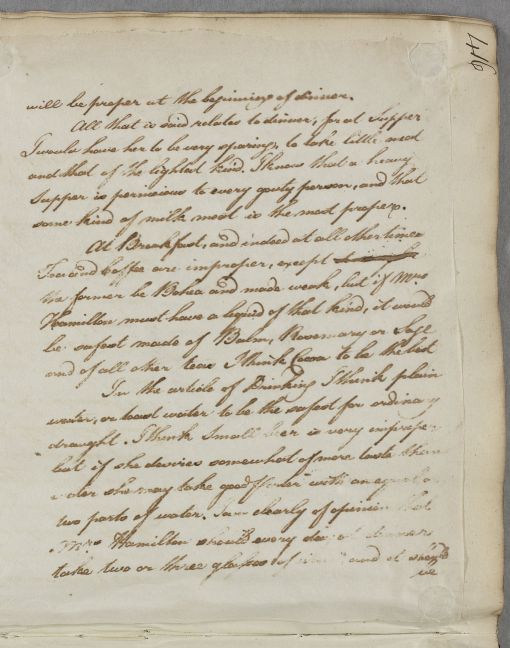 will be proper at the beginning of dinner.
All that is said relates to dinner, for at Supper
I would have her to be very sparing, to take little meat
and that of the lightest kind. I know that a heavy
supper is pernicious to every gouty person, and that
some kind of milk meat is the most proper.
At Breakfast, and indeed at all other times
Tea and Coffee are improper, except
the former be Bohea and made weak, but if Mrs
Hamilton must have a liquid of that kind, it would
be safest made of Balm, Rosemary or Sage
and of all other teas I think Cocoa to be the best
In the article of Drinking I think plain
water, or toast water to be the safest for ordinary
draught. I think Small beer is very improper
but if she desires somewhat of more taste than
water she may take good Porter with an equal or
two parts of water. I am clearly of opinion that
Mrs Hamilton should every day at dinner
take two or three glasses of wine and it should
be
947